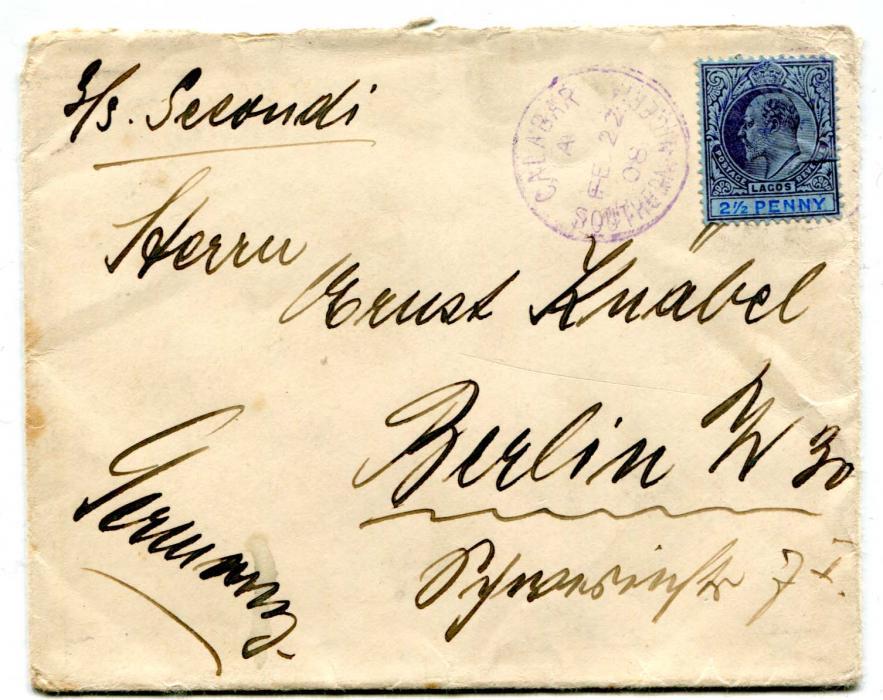 S/s. Secondi
CALABAR
A
FE 22
08
SOUTHERN NIGERIA
POSTAGE LAGOS REVENUE
2½ PENNY
Herrn
Ernst Knäbel
Berlin W 30
Schwerinstr 7 I.
Germany.